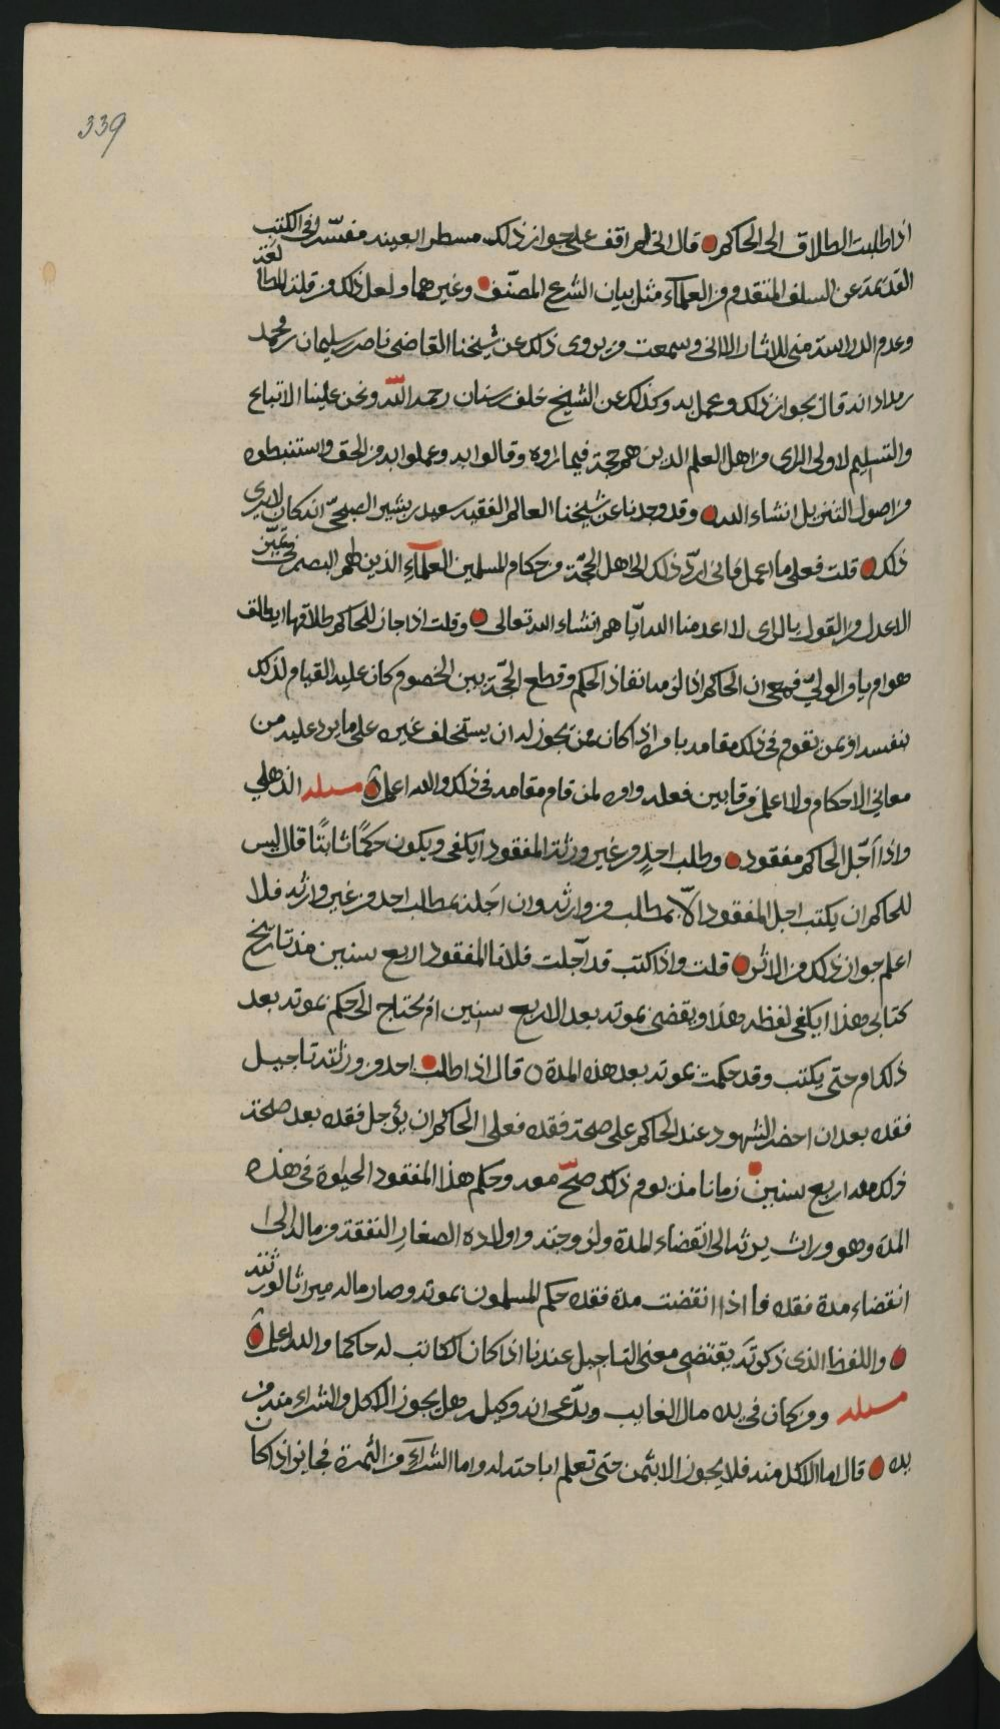 339
اذا طلبت الطلاق الى الحاكم قال اني لم اقف على جواز ذلك مسطرا بعينه مفسّرا في الكتب
القديمة عن السلف المتقدم من العلمآء مثل بيان الشرع المصنّف وغيرهما ولعل ذلك من قلة المطالعة
وعدم الدراسة مني للاثار الا اني وسمعت من يروى ذلك عن شيخنا القاضي ناصر بن سليمان بن محمد
بن مداد انه قال بجواز ذلك وعمل به وكذلك عن الشيخ خلف بن سنان رحمه الله ونحن علينا الاتباع
والتسليم لاولى الراى من اهل العلم الذين هم حجة فيما راوه وقالوا به وعملوا به من الحق واستنبطوه
من اصول التنزيل انشاء الله وقد وجدنا عن شيخنا العالم الفقيه سعيد بن بشير الصبحيّ انه كان لا يرى
ذلك قلت فعلى ما اعمل فاني اردّ ذلك الى اهل الحجّة من حكام المسلمين العلمآء الذين لهم البصر في تميّز
الاعدل من القول بالراى لا اعدمنا الله ايّاهم انشاء الله تعالى وقلت اذا جاز للحاكم طلاقها ايطلق
هو ام يامر الوليّ فمعي ان الحاكم اذا لزمه انفاذ الحكم وقطع الحجّة بين الخصوم وكان عليه القيام لذلك
بنفسه او بمن يقوم في ذلك مقامه بامره اذا كان ممن يجوز له ان يستخلف غيره على ما يرد عليه من
معاني الاحكام ولا اعلم فرقا بين فعله وامره لمن قام مقامه في ذلك والله اعلم مسئله الذهلي
واذا أجّل الحاكم مفقود وطلب احدٍ من غير ورثة المفقود ايكفى ويكون حكمًا ثابتًا قال ليس
للحاكم ان يكتب اجل المفقود الاّ بمطلب من وارثه وان اجّله بمطلب احد من غير وارثه فلا
اعلم جواز ذلك من الاثر قلت واذا كتب قد آجّلت فلانا المفقود اربع سنين مذ تاريخ
كتابى هذا ايكفى لفظه هذا ويقضى بموته بعد الاربع سنين ام يحتاج الى حكم بموته بعد
ذلك ام حتى يكتب وقد حكمت بموته بعد هذه المدة قال اذا طلب احد من ورثته تاجيل
فقده بعد ان احضر الشهود عند الحاكم على صحة فقده فعلى الحاكم ان يؤجل فقده بعد صحة
ذلك معه اربع سنين زمانا مذ يوم ذلك صحّ معه وحكم هذا المفقود الحيوة في هذه
المدة وهو وارث يرثه الى انقضاء المدة ولزوجته واولاده الصغار النفقة من ماله الى
انقضاء مدة فقده فاذا انقضت مدة فقده حكم المسلمون بموته وصار ماله ميراثا لورثته
واللفظ الذى ذكرتَه يقتضى معنى التاجيل عندنا اذا كان الكاتب له حاكما والله اعلم
مسئله ومن كان في يده مال الغايب ويدّعى انه وكيل هل يجوز الاكل والشراء منه من
يده قال اما الاكل منه فلا يجوز الا بثمن حتى تعلم اباحته له واما الشرآء من الثمرة فجايز اذا كان